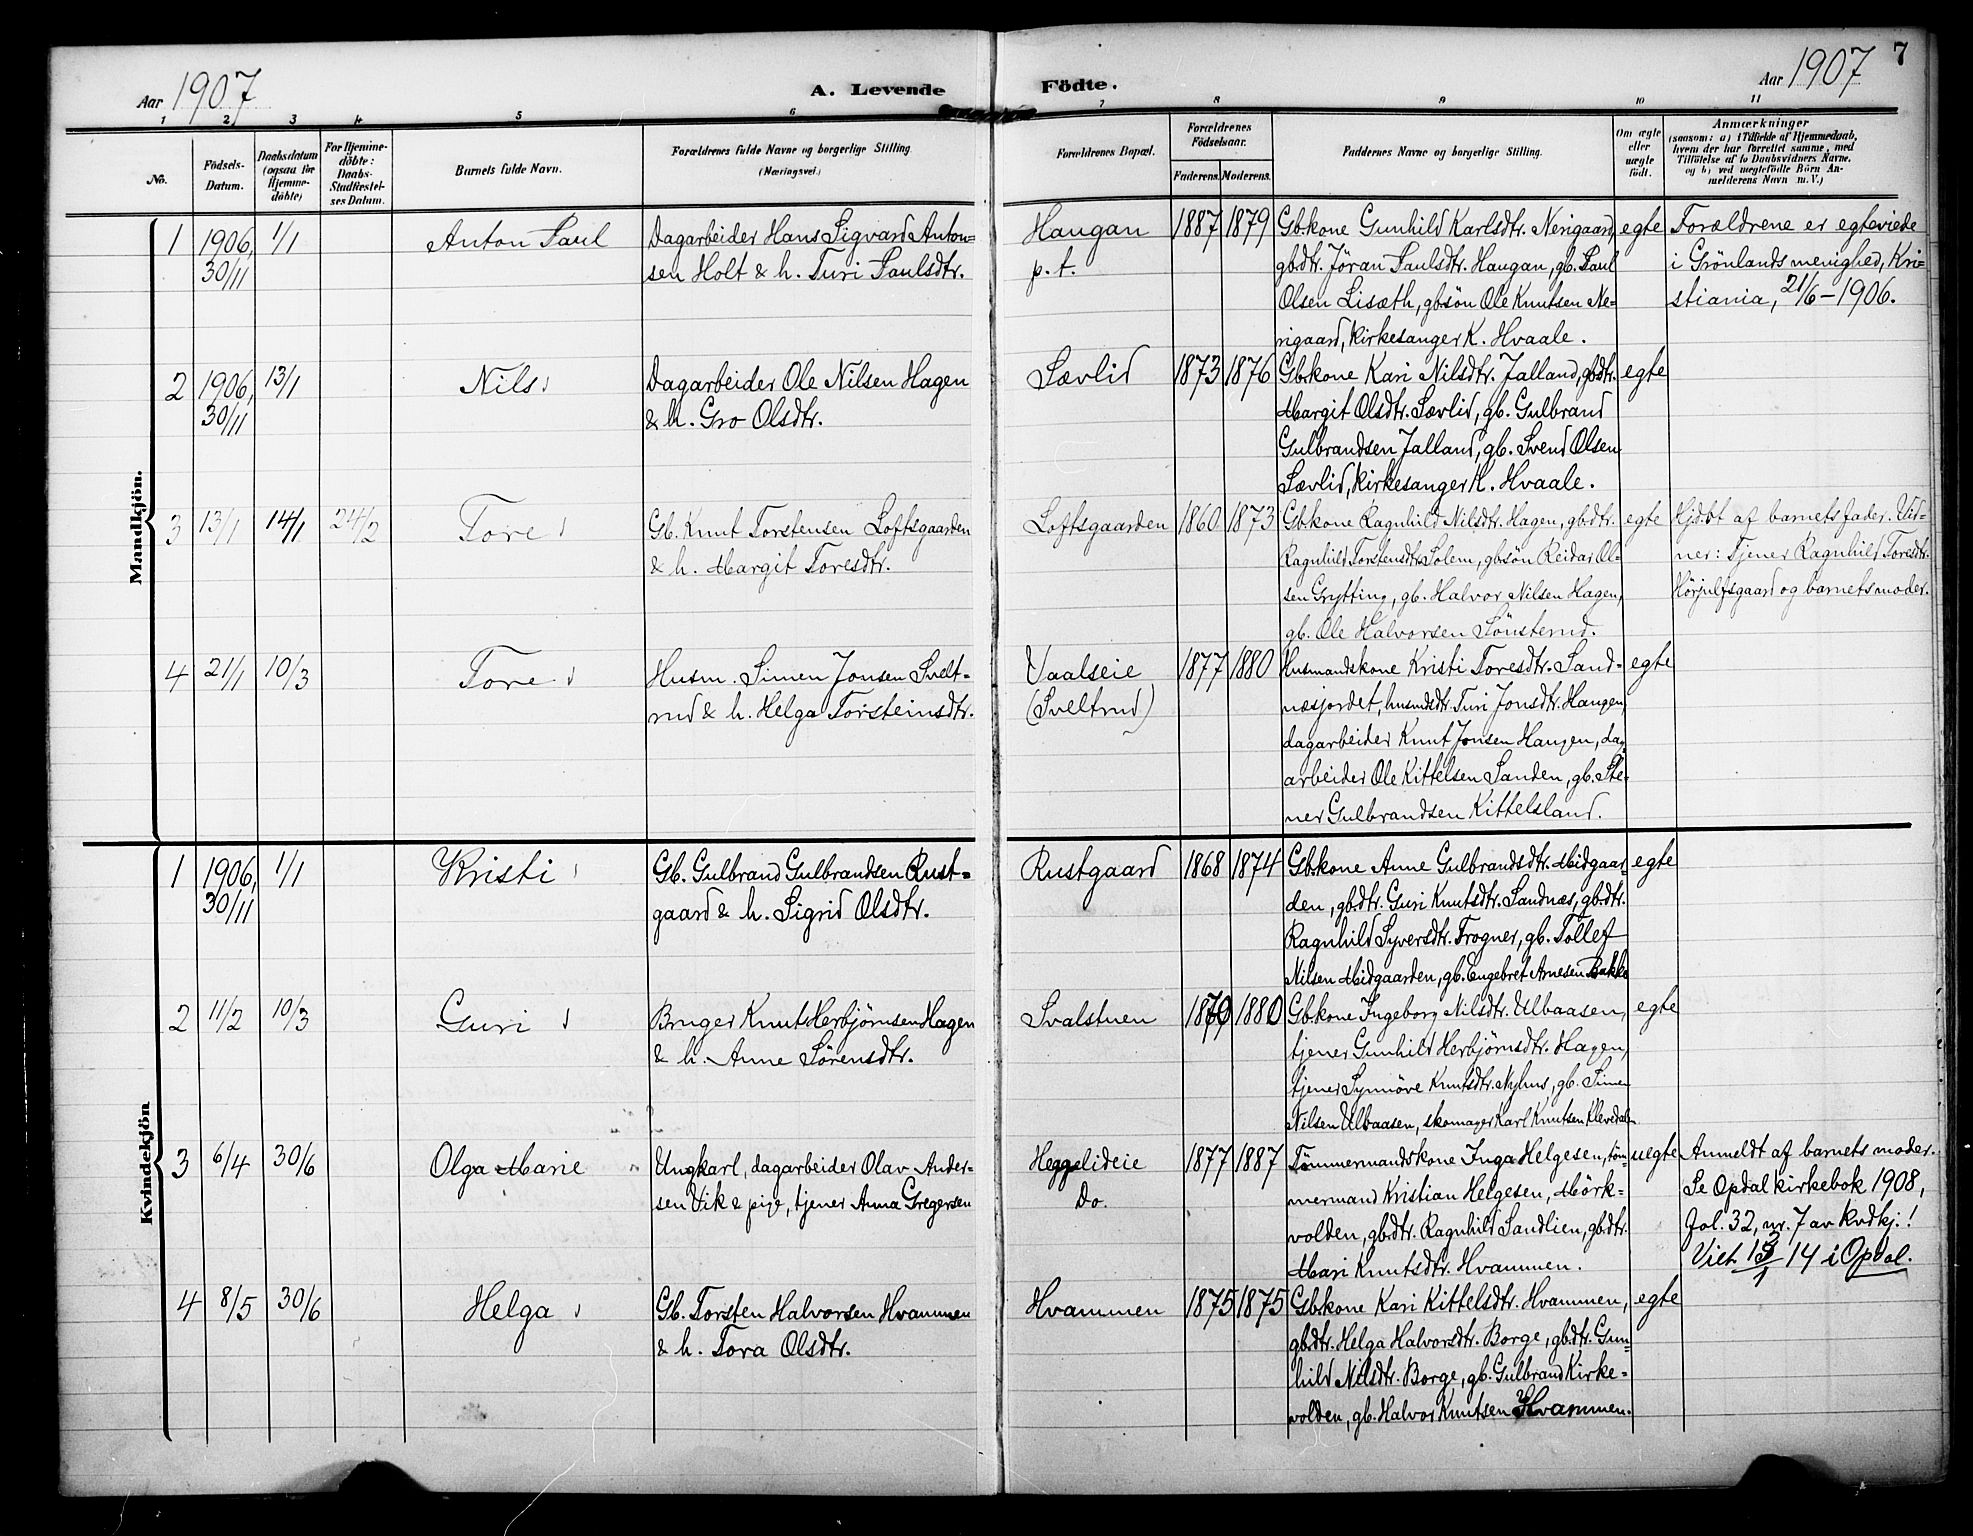 Aar 1907
A. Levende
Födte.
Aar 1907
7
1 2 3 4 5 6 7 8 9 10 11
No.
Födsels-
Datum.
Daabsdatum
(ogsaa for
Hjemme-
döbte)
For Hjemme-
döbte:
Daabs-
Stadfæstel-
ses Datum.
Barnets fulde Navn.
Forældrenes fulde Navne og borgerlige Stilling
(Næringsvei.)
Forældrenes Bopæl.
Forældrenes
Födselsaar.
Faderens. Moderens.
Faddernes Navne og borgerlige Stilling.
Om ægte
eller
uægte
födt.
Anmærkninger
(saasom: a) i Tilfælde af Hjemmedaab,
hvem der har forrettet samme, med
Tilföielse af to Daabsvidners Navne.
og b) ved uægtefödte Börn An-
melderens Navn m. V.)
Mandkjön.
1 1906, 30/11 1/1 Anton Paul
Dagarbeider Hans Sigvard Anton=
sen Holt & h. Turi Paulsdtr.
Haugan
p. t.
1887 1879
Gbkone Gunhild Karlsdtr. Nerigaard,
gbdtr. Jöran Paulsdtr. Haugan, gb. Paul
Olsen Lisæth, gbsön Ole Knutsen Ne-
rigaard, kirkesanger K. Hvaale.
egte
Forældrene er egteviede
i Grönlands menighed, Kri-
stiania, 21/6 - 1906.
2 1906, 30/11 13/1 Nils
Dagarbeider Ole Nilsen Hagen
& h. Gro Olsdtr.
Sævlid
1873 1876
Gbkone Kari Nilsdtr. Jalland, gbdtr.
Margit Olsdtr. Sævlid, gb. Gulbrand
Gulbrandsen Jalland, gb. Svend Olsen
Sævlid, kirkesanger K. Hvaale.
egte
3 13/1 14/1 24/2 Tore
Gb. Knut Torstensen Loftsgaarden
& h. Margit Toresdtr.
Loftsgaarden
1860 1873
Gbkone Ragnhild Nilsdtr. Hagen, gbdtr.
Ragnhild Torstensdtr. Solem, gbsön Reidar Ol-
sen Grytting, gb. Halvor Nilsen Hagen,
gb. Ole Halvorsen Sönsterud.
egte
Hjdbt af barnets fader. Vid-
ner: Tjener Ragnhild Toresdtr.
Hörjulfsgaard og barnets moder.
4 21/1 10/3 Tore
Husm. Simen Jonsen Svelt-
rud & h. Helga Torsteinsdtr.
Vaalseie
(Sveltrud)
1877 1880
Husmandskone Kristi Toresdtr. Sand-
næsjordet, husmdtr. Turi Jonsdtr. Haugen,
dagarbeider Knut Jonsen Haugen, dag
arbeider Ole Kittelsen Sanden, gb. Ste-
ner Gulbrandsen Kittelsland.
egte
Kvindekjön
1 1906, 30/11 1/1 Kristi
Gb. Gulbrand Gulbrandsen Rust-
gaard & h. Sigrid Olsdtr.
Rustgaard
1868 1874
Gbkone Anne Gulbrandsdtr. Midgaar-
den, gbdtr. Guri Knutsdtr. Sandnæs, gbdtr.
Ragnhild Syversdtr. Frogner, gb. Tollef
Nilsen Midgaarden, gb. Engebret Arnesen Bakke
egte
2 11/2 10/3 Guri
Bruger Knut Herbjörnsen Hagen
& h. Anne Sörensdtr.
Svalstuen
1879 1880
Gbkone Ingeborg Nilsdtr. Ulbaasen,
tjener Gunhild Herbjörnsdtr. Hagen,
tjener Synnöve Knutsdtr. Nyhus, gb. Simen
Nilsen Ulbaasen, skomager Karl Knutsen Klevedalen
egte
3 6/4 30/6 Olga Marie
Ungkarl, dagarbeider Olav Ander-
sen Vik & pige, tjener Anna Gregersen
Heggelideie
Do.
1877 1887
Tömmermandskone Inga Helgesen, töm-
mermand Kristian Helgesen, Mörk-
volden, gbdtr. Ragnhild Sandlien, gbdtr.
Mari Knutsdtr. Hvammen.
uegte
Anmeldt af barnets moder.
Se Opdal kirkebok 1908,
Fol. 32, nr. 7 av kvdkj.!
Viet 14 i Opdal.
4 8/5 30/6 Helga
Gb. Torsten Halvorsen Hvammen
& h. Tora Olsdtr.
Hvammen
1875 1875
Gbkone Kari Kittelsdtr. Hvammen,
gbdtr. Helga Halvorsdtr. Borge, gbdtr. Gun-
hild Nilsdtr. Borge, gb. Gulbrand Kirke-
volden, gb. Halvor Knutsen Hvammen.
egte